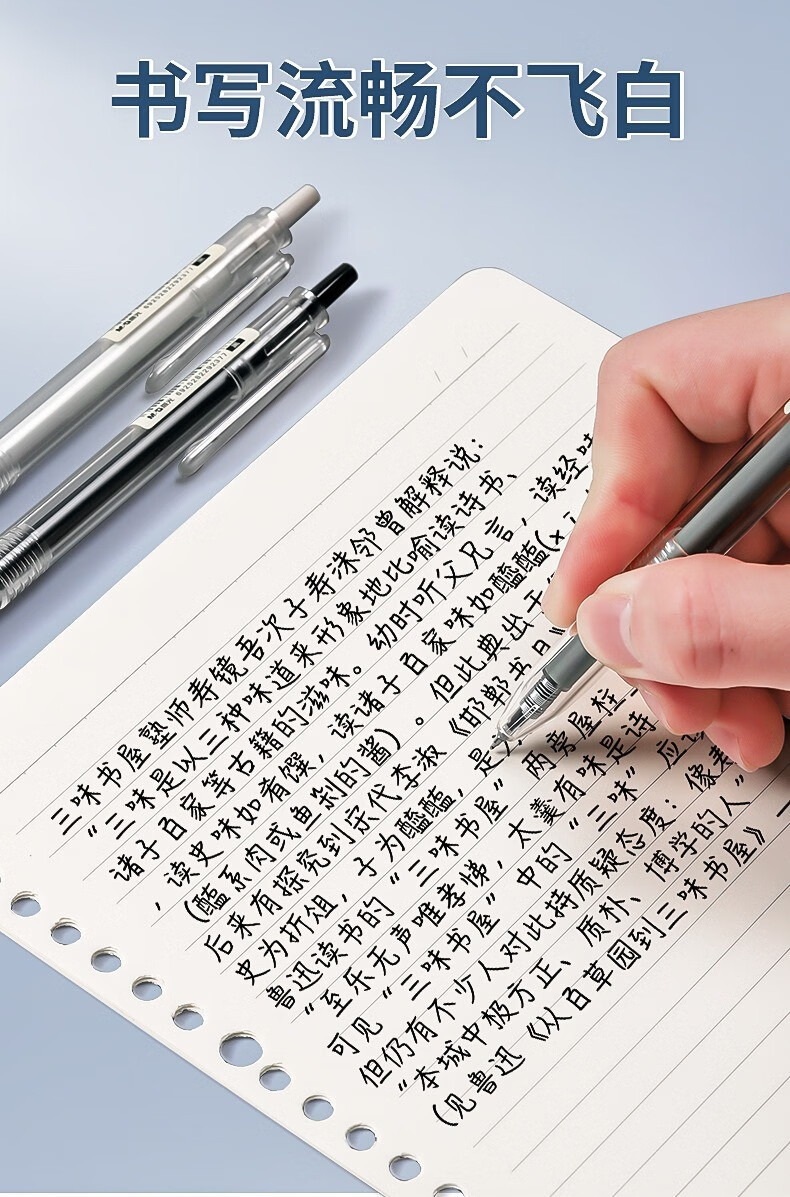 书写流畅不飞白
M&G晨光 6925282292377
M&G晨光 6925282292377
三味书屋塾师寿镜吾次子寿洙邻曾解释说：
“三味是以三种味道来形象地比喻读诗书、
诸子百家等古籍的滋味。幼时听父兄言，读经味
，读史味如肴馔，读诸子百家味如醯醢(x
(醯系肉或鱼剁的酱)。但此典出于
后来有探究到宋代李淑《邯郸书目》
史为折俎，子为醯醢，是
鲁迅读书的“三味书屋”两旁屋柱
“至乐无声唯孝悌，太羹有味是诗
可见“三味书屋”中的“三味”应
但仍有不少人对此持质疑态度：像寿
“本城中极方正、质朴、博学的人”
(见鲁迅《从百草园到三味书屋》一